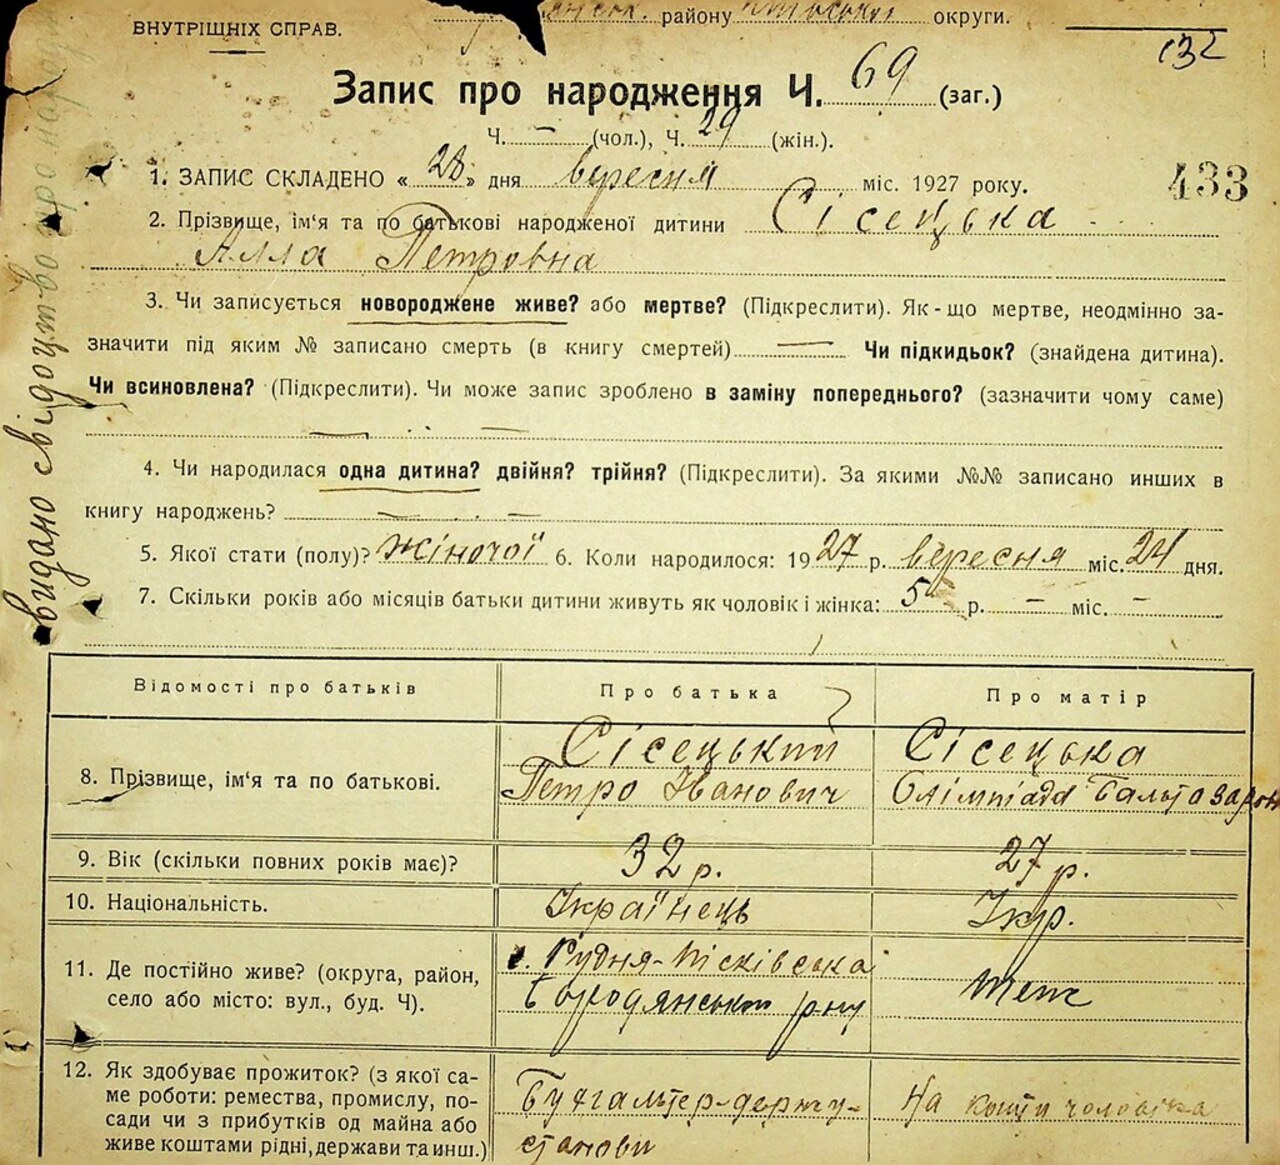 ВНУТРІЩНІХ СПРАВ.
району округи.
132
Запис про народження Ч. 69 (заг.)
Ч. — (чол.), Ч. 29 (жін.).
1. ЗАПИС СКЛАДЕНО « 28 » дня вересня міс. 1927 року.
433
2. Прізвище, ім‘я та по батькові народженої дитини Сісецька
Алла Петровна
3. Чи записується новороджене живе? або мертве? (Підкреслити). Як-що мертве, неодмінно за-
значити під яким № записано смерть (в книгу смертей) — Чи підкидьок? (знайдена дитина).
Чи всиновлена? (Підкреслити). Чи може запис зроблено в заміну попереднього? (зазначити чому саме)
— . . —
4. Чи народилася одна дитина? двійня? трійня? (Підкреслити). За якими №№ записано инших в
книгу народжень? — . —
5. Якої стати (полу)? жіночої 6. Коли народилося: 1927 р. вересня міс. 24 дня.
7. Скільки років або місяців батьки дитини живуть як чоловік і жінка: 5 р. — міс. —
видано свідоцтво про народж
Відомості про батьків Про батька Про матір
8. Прізвище, ім‘я та по батькові.
Сісецький
Петро Іванович
Сісецька
Олімпіада Бальтозаров
9. Вік (скільки повних років має)? 32 р. 27 р.
10. Національність. Українець Укр.
11. Де постійно живе? (округа, район,
село або місто: вул., буд. Ч).
с. Рудня-Пісківська
Бородянськ р-ну
теж
12. Як здобуває прожиток? (з якої са-
ме роботи: ремества, промислу, по-
сади чи з прибутків од майна або
живе коштами рідні, держави та инш.)
Бухгальтер-держу-
станови
На кошти чоловіка